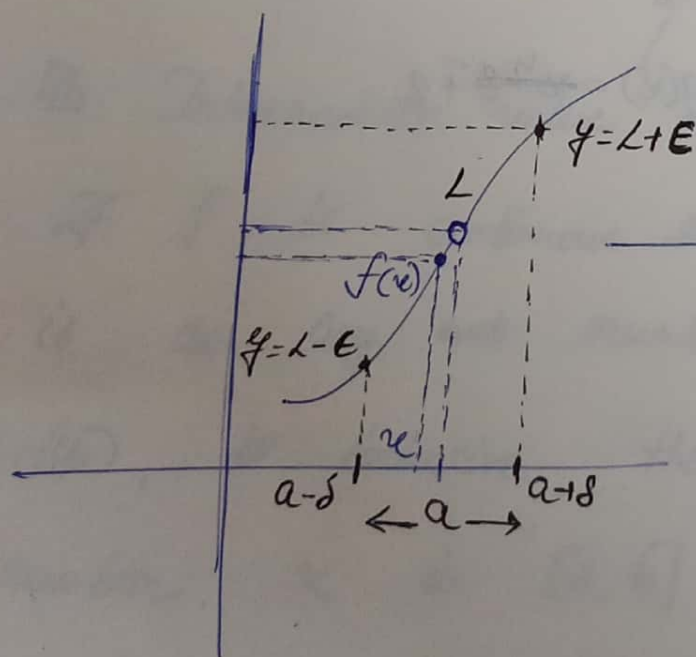 y=L+ϵ
L
f(x)
y=L-ϵ
x
a-δ
a
a+δ